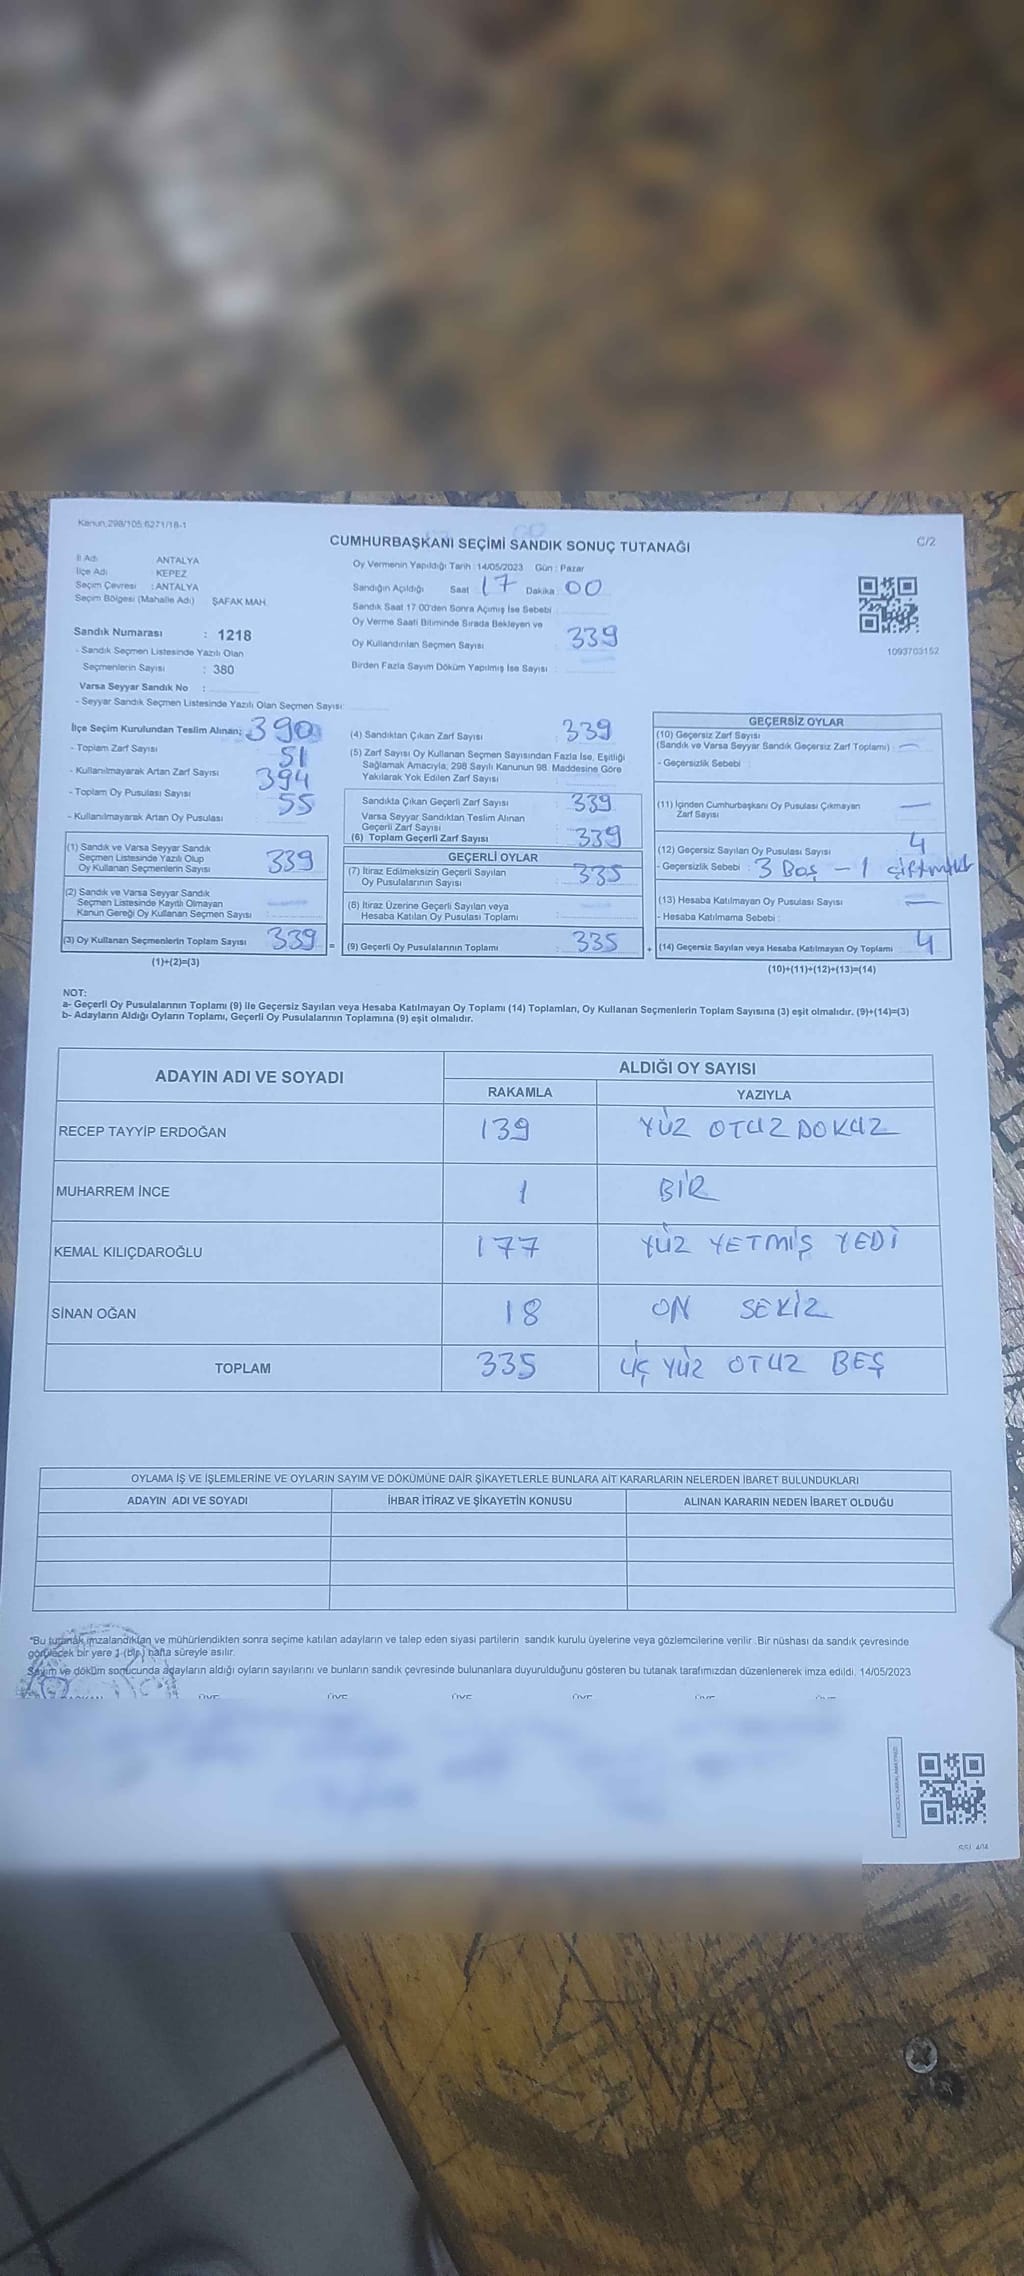 Kanun;298/105;6271/18-1
C/2
CUMHURBAŞKANI SEÇİMİ SANDIK SONUÇ TUTANAĞI
İl Adı ANTALYA
İlçe Adı : KEPEZ
Seçim Çevresi : ANTALYA
Seçim Bölgesi (Mahalle Adı) ŞAFAK MAH.
Sandık Numarası : 1218
- Sandık Seçmen Listesinde Yazılı Olan
Seçmenlerin Sayısı : 380
Varsa Seyyar Sandık No :
- Seyyar Sandık Seçmen Listesinde Yazılı Olan Seçmen Sayısı:
Oy Vermenin Yapıldığı Tarih : 14/05/2023 Gün : Pazar
Sandığın Açıldığı Saat 17 Dakika 00
Sandık Saat 17.00'den Sonra Açımış İse Sebebi
Oy Verme Saati Bitiminde Sırada Bekleyen ve
Oy Kullandırılan Seçmen Sayısı 339
Birden Fazla Sayım Döküm Yapılmış İse Sayısı
1093703152
İlçe Seçim Kurulundan Teslim Alınan; 390
- Toplam Zarf Sayısı
51
- Kullanılmayarak Artan Zarf Sayısı 394
- Toplam Oy Pusulası Sayısı 55
- Kullanılmayarak Artan Oy Pusulası
(1) Sandık ve Varsa Seyyar Sandık
Seçmen Listesinde Yazılı Olup
Oy Kullanan Seçmenlerin Sayısı 339
(2) Sandık ve Varsa Seyyar Sandık
Seçmen Listesinde Kayıtlı Olmayan
Kanun Gereği Oy Kullanan Seçmen Sayısı
(3) Oy Kullanan Seçmenlerin Toplam Sayısı 339 =
(1)+(2)=(3)
(4) Sandıktan Çıkan Zarf Sayısı 339
(5) Zarf Sayısı Oy Kullanan Seçmen Sayısından Fazla İse, Eşitliği
Sağlamak Amacıyla; 298 Sayılı Kanunun 98. Maddesine Göre
Yakılarak Yok Edilen Zarf Sayısı
Sandıkta Çıkan Geçerli Zarf Sayısı 339
Varsa Seyyar Sandıktan Teslim Alınan
Geçerli Zarf Sayısı
(6) Toplam Geçerli Zarf Sayısı 339
GEÇERLİ OYLAR
(7) İtiraz Edilmeksizin Geçerli Sayılan
Oy Pusulalarının Sayısı 335
(8) İtiraz Üzerine Geçerli Sayılan veya
Hesaba Katılan Oy Pusulası Toplamı
(9) Geçerli Oy Pusulalarının Toplamı 335 +
GEÇERSİZ OYLAR
(10) Geçersiz Zarf Sayısı
(Sandık ve Varsa Seyyar Sandık Geçersiz Zarf Toplamı) : —
- Geçersizlik Sebebi :
(11) İçinden Cumhurbaşkanı Oy Pusulası Çıkmayan
Zarf Sayısı —
(12) Geçersiz Sayılan Oy Pusulası Sayısı 4
- Geçersizlik Sebebi : 3 Boş - 1
(13) Hesaba Katılmayan Oy Pusulası Sayısı —
- Hesaba Katılmama Sebebi :
(14) Geçersiz Sayılan veya Hesaba Katılmayan Oy Toplamı 4
(10)+(11)+(12)+(13)=(14)
NOT:
a- Geçerli Oy Pusulalarının Toplamı (9) ile Geçersiz Sayılan veya Hesaba Katılmayan Oy Toplamı (14) Toplamları, Oy Kullanan Seçmenlerin Toplam Sayısına (3) eşit olmalıdır. (9)+(14)=(3)
b- Adayların Aldığı Oyların Toplamı, Geçerli Oy Pusulalarının Toplamına (9) eşit olmalıdır.
ADAYIN ADI VE SOYADI ALDIĞI OY SAYISI
RAKAMLA YAZIYLA
RECEP TAYYİP ERDOĞAN 139 YÜZ OTUZ DOKUZ
MUHARREM İNCE 1 BİR
KEMAL KILIÇDAROĞLU 177 YÜZ YETMİŞ YEDİ
SİNAN OĞAN 18 ON SEKİZ
TOPLAM 335 ÜÇ YÜZ OTUZ BEŞ
OYLAMA İŞ VE İŞLEMLERİNE VE OYLARIN SAYIM VE DÖKÜMÜNE DAİR ŞİKAYETLERLE BUNLARA AİT KARARLARIN NELERDEN İBARET BULUNDUKLARI
ADAYIN ADI VE SOYADI İHBAR İTİRAZ VE ŞİKAYETİN KONUSU ALINAN KARARIN NEDEN İBARET OLDUĞU
"Bu tutanak imzalandıktan ve mühürlendikten sonra seçime katılan adayların ve talep eden siyasi partilerin sandık kurulu üyelerine veya gözlemcilerine verilir. Bir nüshası da sandık çevresinde
görülecek bir yere 1 (bir) hafta süreyle asılır.
Sayım ve döküm sonucunda adayların aldığı oyların sayılarını ve bunların sandık çevresinde bulunanlara duyurulduğunu gösteren bu tutanak tarafımızdan düzenlenerek imza edildi. 14/05/2023
ÜYE ÜYE ÜYE ÜYE ÜYE